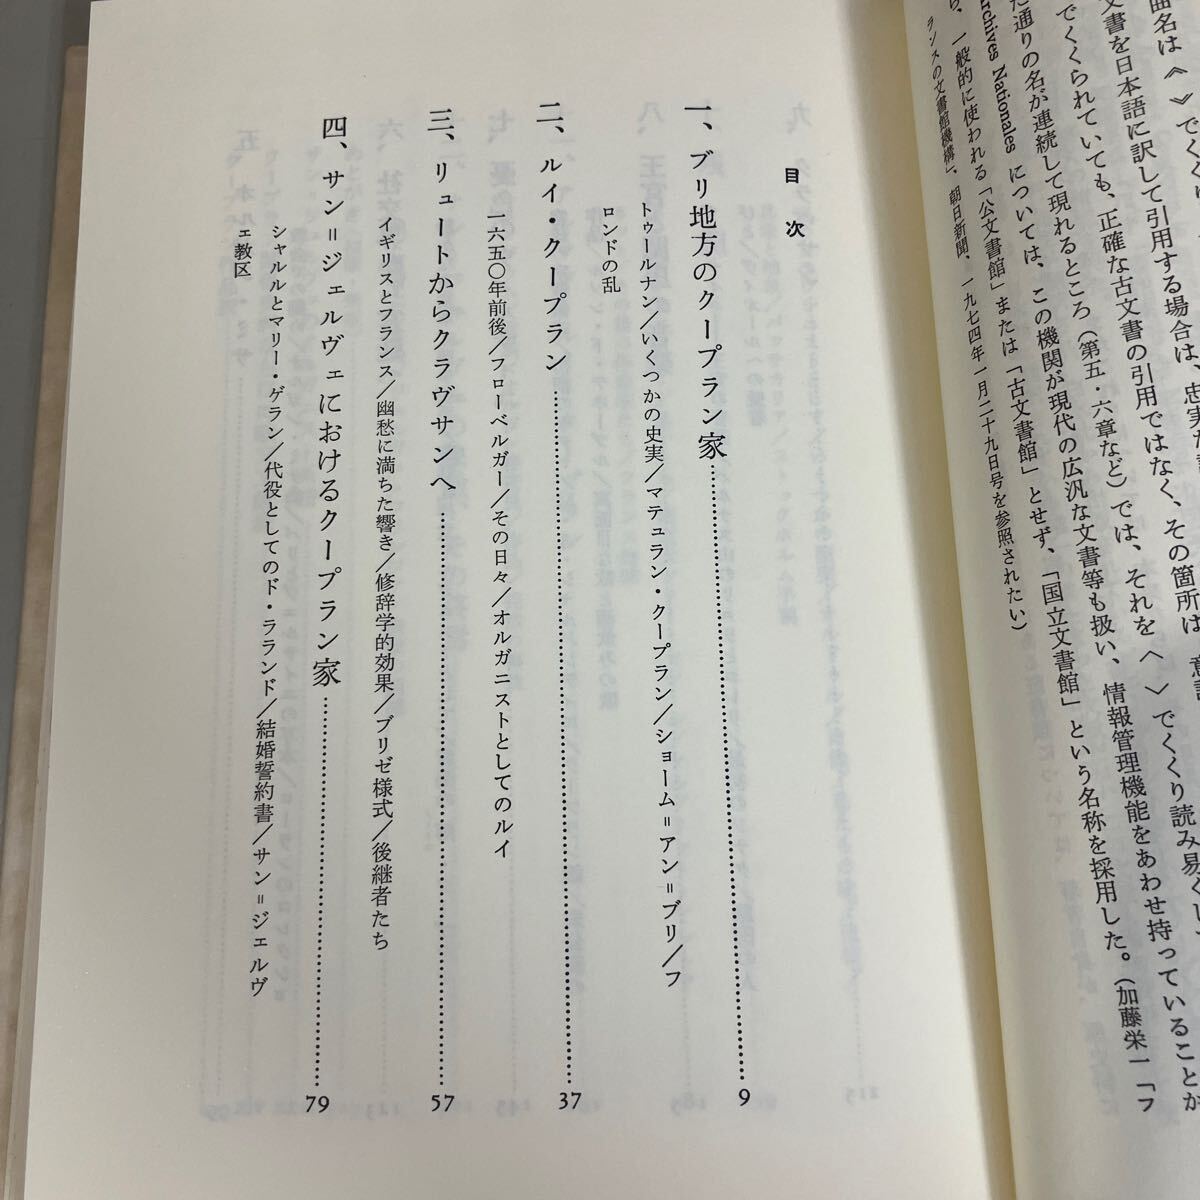 曲名は《 》でくくり
文書を日本語に訳して引用する場合は、忠実な
でくくられていても、正確な古文書の引用ではなく、その箇所は
た通りの名が連続して現れるところ（第五・六章など）では、それを〈 〉でくくり読み易くし
Archives Nationales については、この機関が現代の広汎な文書等も扱い、情報管理機能をあわせ持っていることか
ら、一般的に使われる「公文書館」または「古文書館」とせず、「国立文書館」という名称を採用した。（加藤栄一「フ
ランスの文書館機構」、朝日新聞、一九七四年一月二十九日号を参照されたい）
目次
一、ブリ地方のクープラン家……9
トゥールナン／いくつかの史実／マテュラン・クープラン／ショーム＝アン＝ブリ／フ
ロンドの乱
二、ルイ・クープラン……37
一六五〇年前後／フローベルガー／その日々／オルガニストとしてのルイ
三、リュートからクラヴサンへ……57
イギリスとフランス／幽愁に満ちた響き／修辞学的効果／ブリゼ様式／後継者たち
四、サン＝ジェルヴェにおけるクープラン家……79
シャルルとマリー・ゲラン／代役としてのド・ラランド／結婚誓約書／サン＝ジェルヴ
ェ教区